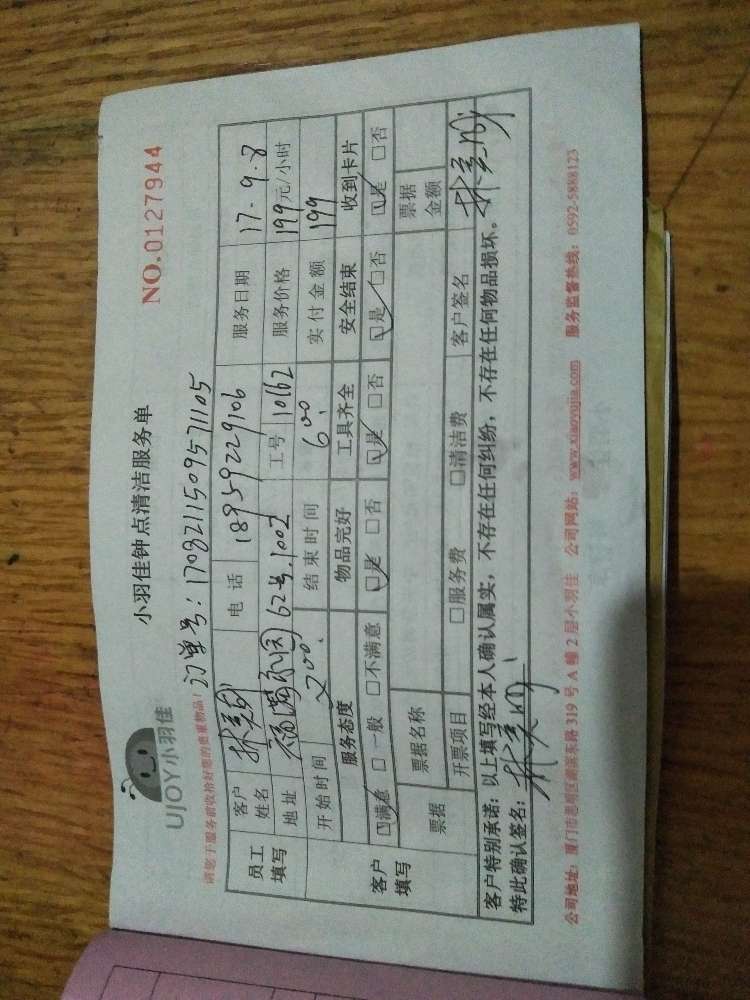 小羽佳钟点清洁服务单
NO.0127944
UJOY小羽佳
请您于服务前收拾好您的贵重物品！
订单号：1708211509571105
员工填写 客户姓名 电话 18959229106 服务日期 17.9.8
地址 62号.1002 工号 10162 服务价格 199元/小时
开始时间 2:00. 结束时间 6:00. 实付金额 199
客户填写 服务态度 物品完好 工具齐全 安全结束 收到卡片
☑满意 □一般 □不满意 ☑是 □否 ☑是 □否 ☑是 □否 ☑是 □否
票据 票据名称 票据金额
开票项目 □服务费 □清洁费 客户签名
客户特别承诺：以上填写经本人确认属实，不存在任何纠纷，不存在任何物品损坏。
特此确认签名：
公司地址：厦门市思明区湖滨东路319号A幢2层小羽佳 公司网站：www.xiaoyujia.com 服务监督热线：0592-5888123